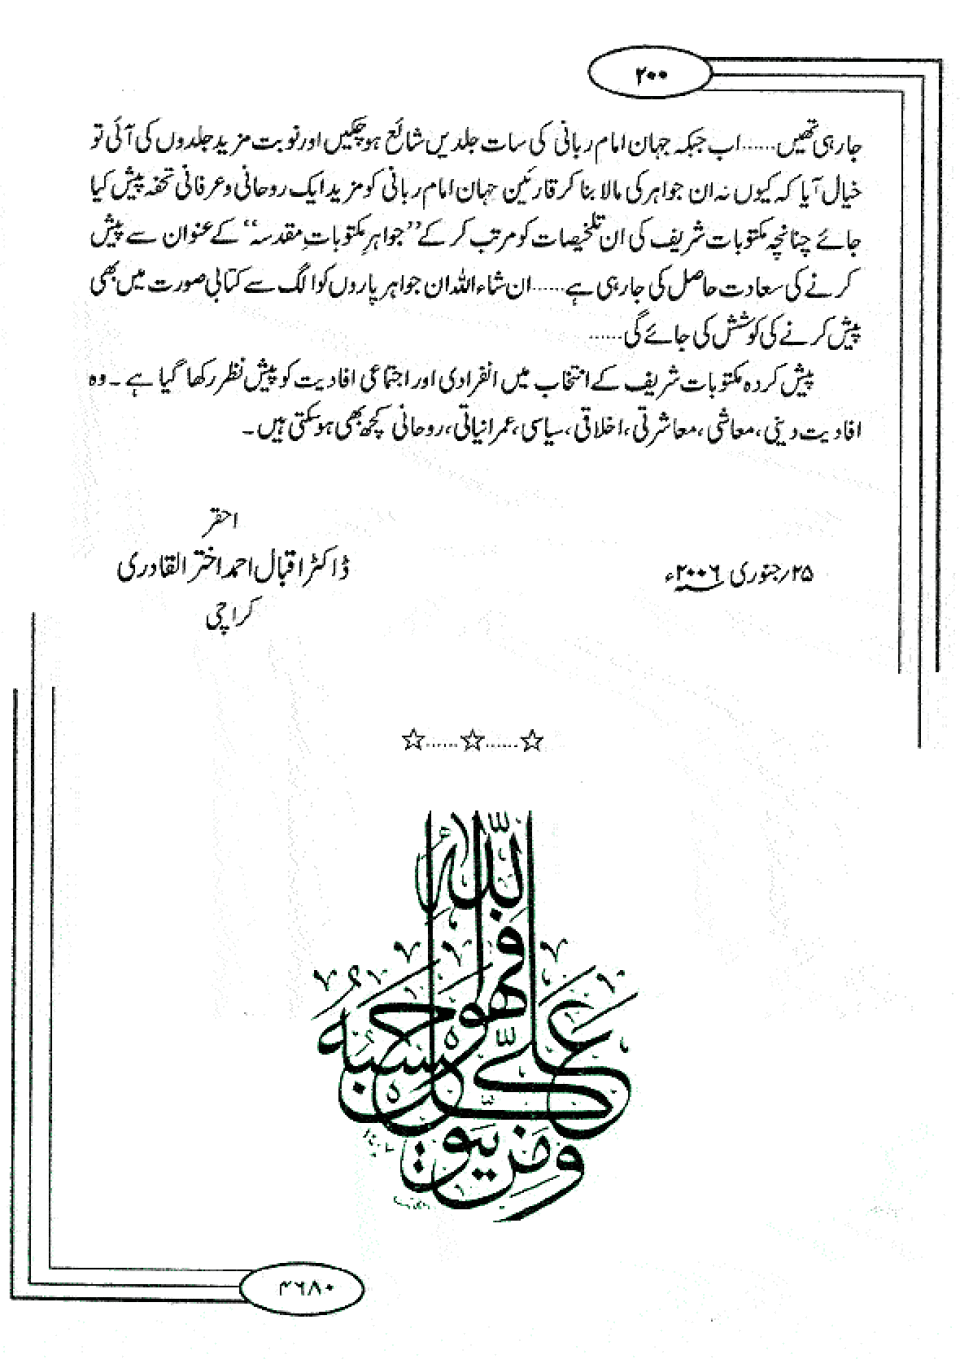 ۲۰۰
جا رہی تھیں......اب جبکہ جہان امام ربانی کی سات جلدیں شائع ہو چکیں اور نوبت مزید جلدوں کی آئی تو
خیال آیا کہ کیوں نہ ان جواہر کی مالا بنا کر قارئین جہان امام ربانی کو مزید ایک روحانی و عرفانی تحفہ پیش کیا
جائے چنانچہ مکتوبات شریف کی ان تلخیصات کو مرتب کر کے ’’جواہرِ مکتوباتِ مقدسہ‘‘ کے عنوان سے پیش
کرنے کی سعادت حاصل کی جا رہی ہے......ان شاء اللہ ان جواہر پاروں کو الگ سے کتابی صورت میں بھی
پیش کرنے کی کوشش کی جائے گی......
پیش کردہ مکتوبات شریف کے انتخاب میں انفرادی اور اجتماعی افادیت کو پیش نظر رکھا گیا ہے۔ وہ
افادیت دینی، معاشی، معاشرتی، اخلاقی، سیاسی، عمرانیاتی، روحانی کچھ بھی ہو سکتی ہیں۔
احقر
ڈاکٹر اقبال احمد اختر القادری
۲۵/جنوری ۲۰۰۶ء
کراچی
☆......☆......☆
ومن يتوكل على الله فهو حسبه
۴۶۸۰